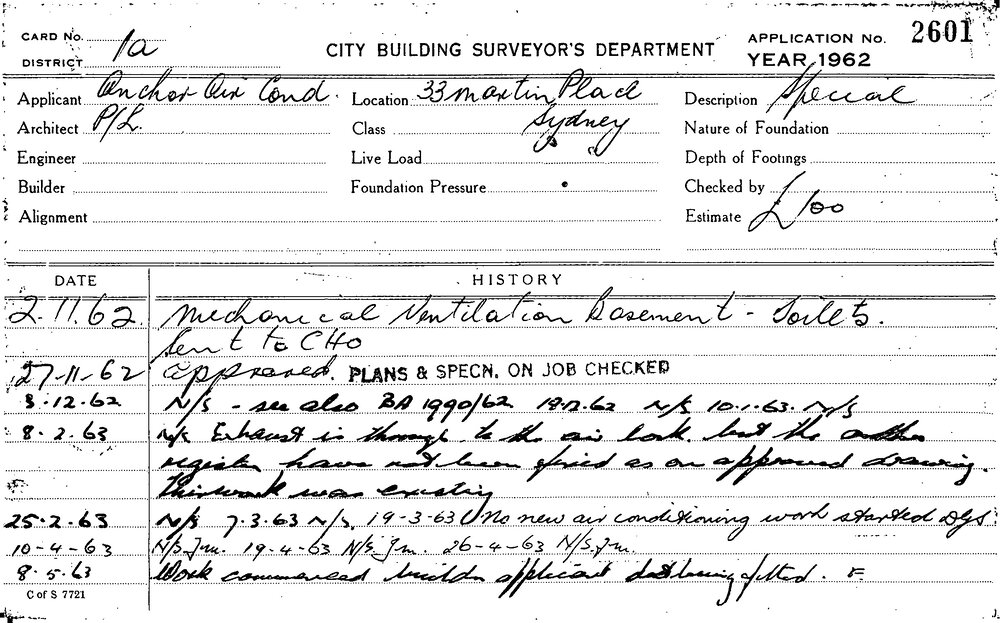 CARD No. 1a
DISTRICT
CITY BUILDING SURVEYOR'S DEPARTMENT
APPLICATION No. 2601
YEAR 1962
Applicant Anchor Air Cond. Location 33 Martin Place Description Special
Architect P/L. Class Sydney Nature of Foundation
Engineer Live Load Depth of Footings
Builder Foundation Pressure Checked by
Alignment Estimate £100
DATE HISTORY
2.11.62 Mechanical Ventilation Basement - Toilets.
Sent to CHO
27-11-62 approved. PLANS & SPECN. ON JOB CHECKED
3.12.62 N/S - see also BA 1990/62 18.12.62 N/S 10.1.63. N/S
8.2.63 N/S Exhaust is through to the air lock but the
register have not been fixed as on approved drawing.
This work was existing
25.2.63 N/S 7.3.63 N/S. 19-3-63 No new air conditioning work started DGS
10-4-63 N/S Jm. 19-4-63 N/S Jm. 26-4-63 N/S Jm.
8.5.63 Work commenced applicant fitted. F.
C of S 7721